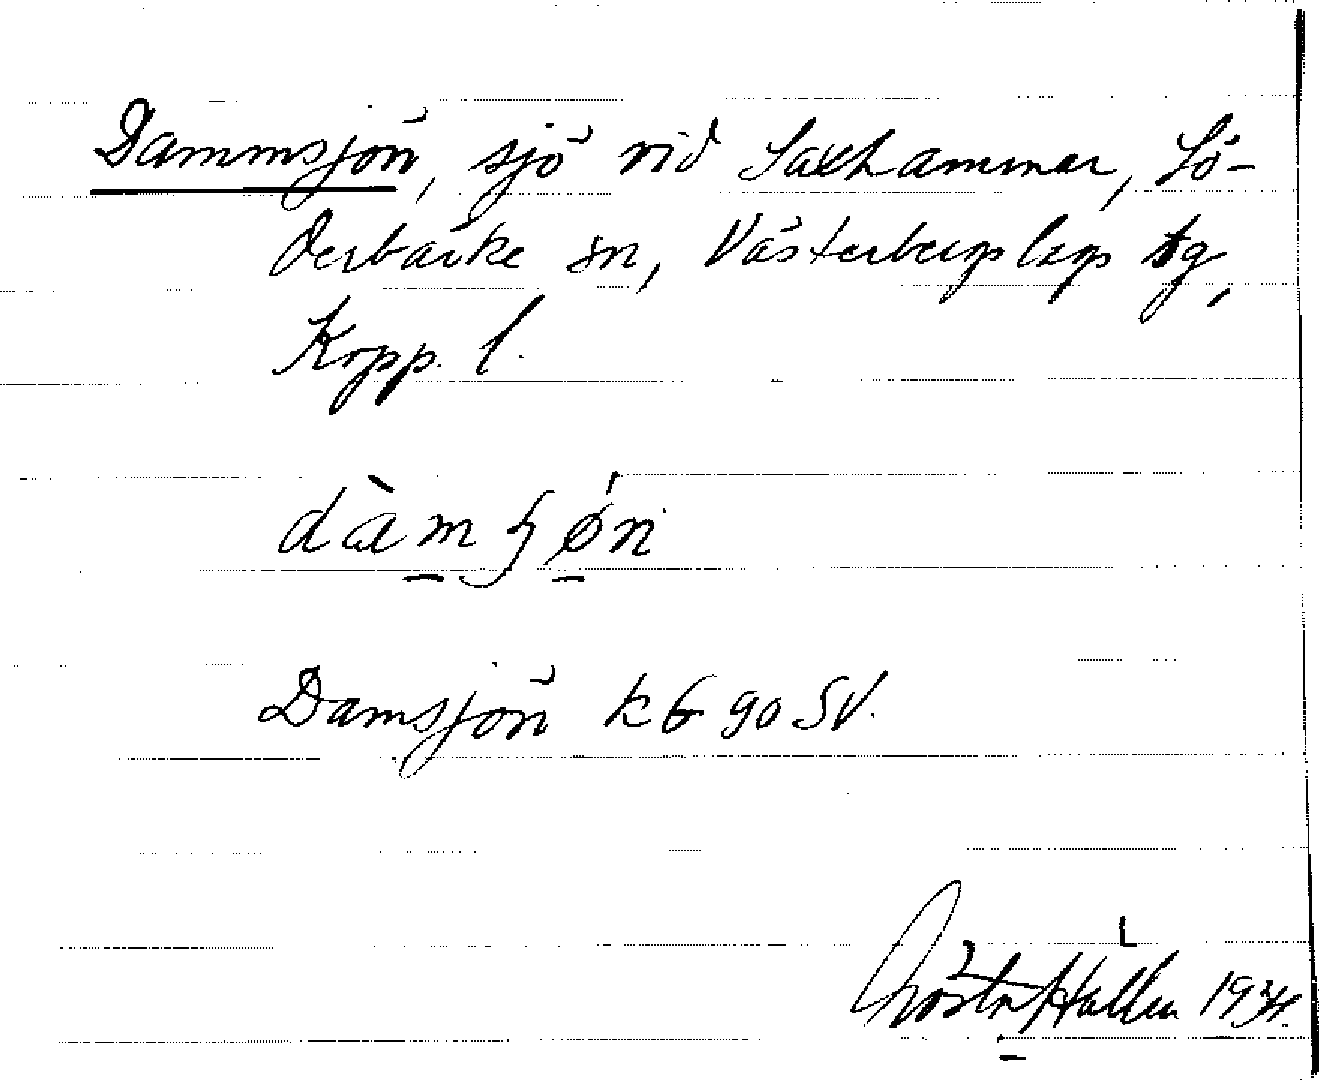 Dammsjön, sjö vid Saxhammar, Sö-
derbärke sn, Västerbergslags tg,
Kopp. l.
Damsjön k 6 90 SV.
Gösta Hallén 1934.